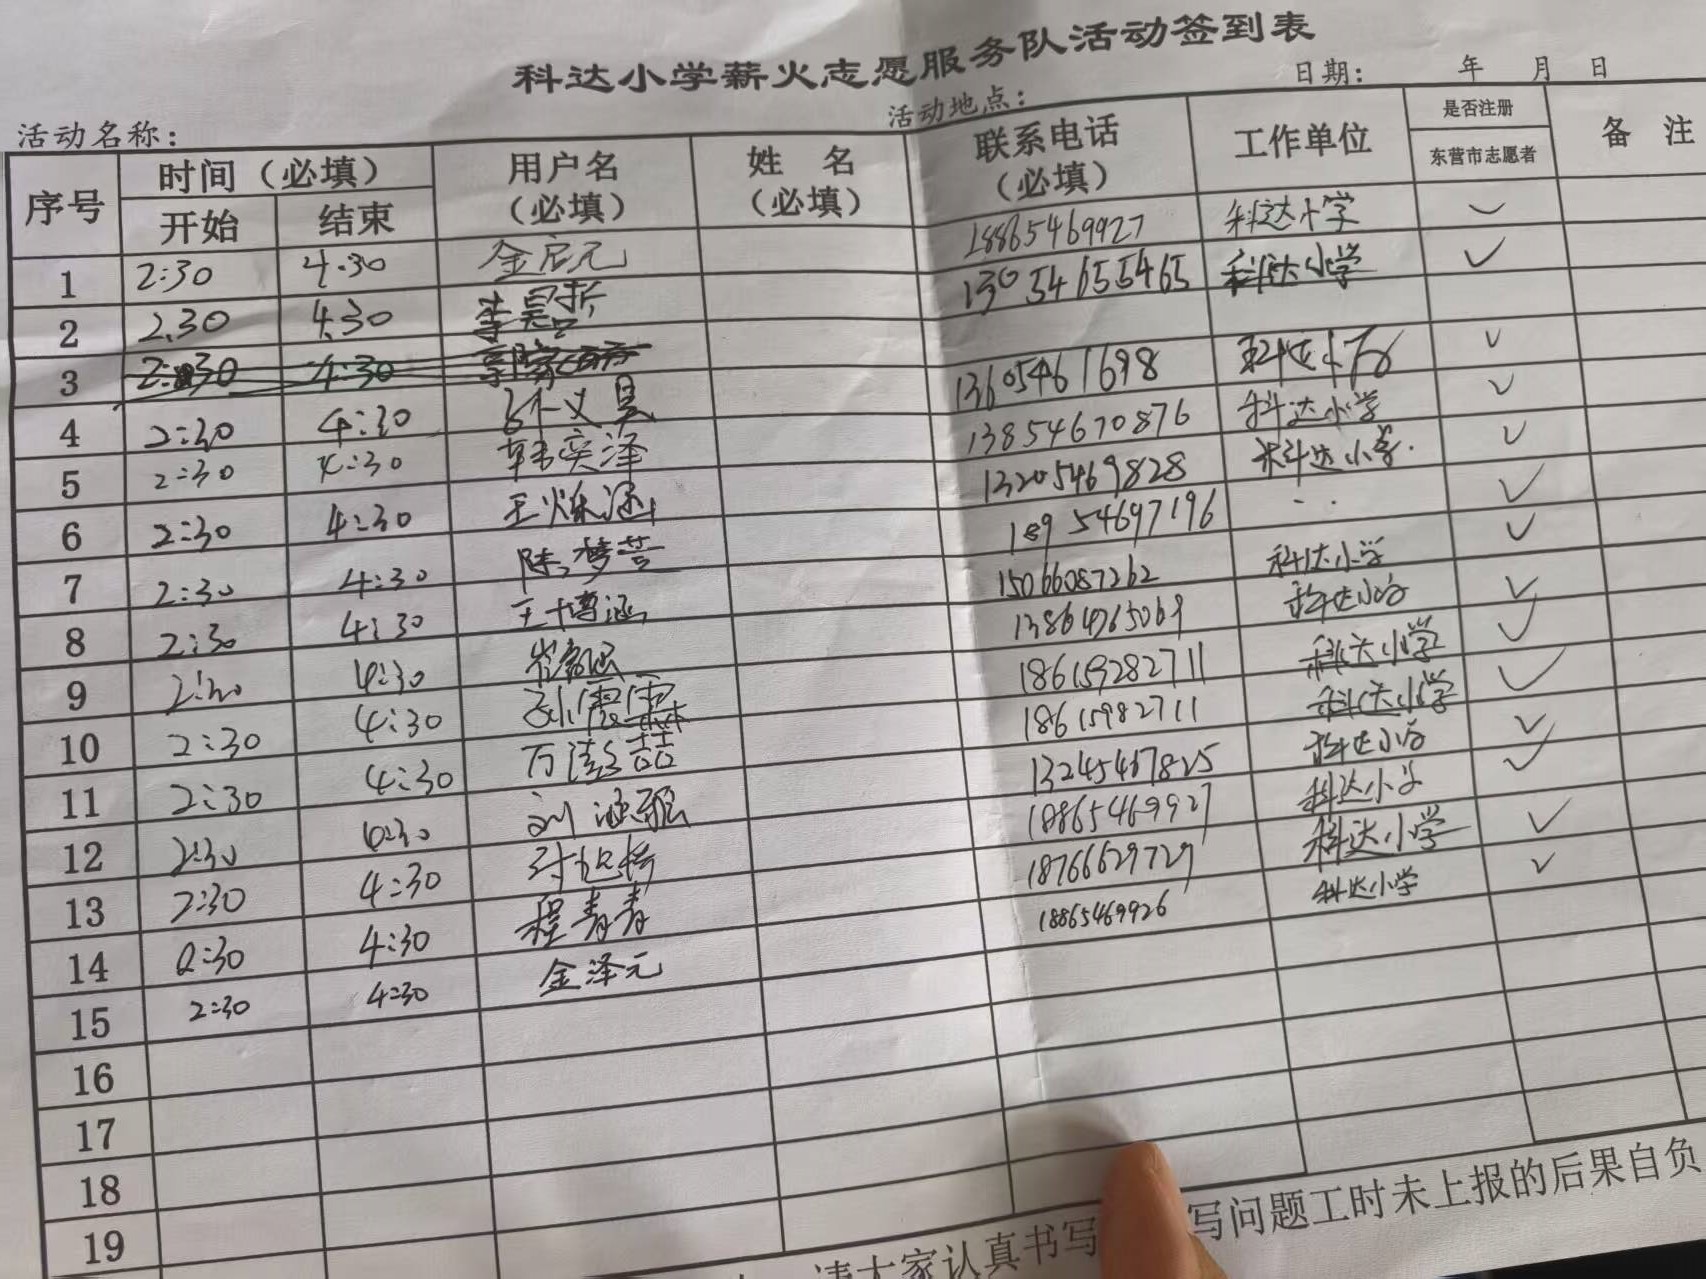 科达小学薪火志愿服务队活动签到表
活动名称: 活动地点: 日期: 年 月 日
序号 时间（必填） 用户名（必填） 姓 名（必填） 联系电话（必填） 工作单位 是否注册东营市志愿者 备 注
开始 结束
1 2:30 4:30 金启元 18865469927 科达小学 ✓
2 2:30 4:30 李昊哲 13054655465 科达小学 ✓
3 2:30 4:30
4 2:30 4:30 13605461698 科达小学 ✓
5 2:30 4:30 韩奕泽 13854670876 科达小学 ✓
6 2:30 4:30 王烁涵 13205469828 科达小学 ✓
7 2:30 4:30 陈梦芸 18954697196 ✓
8 2:30 4:30 王博涵 15066087262 科达小学 ✓
9 2:30 4:30 13864765069 科达小学 ✓
10 2:30 4:30 孙霈霖 186159282711 科达小学 ✓
11 2:30 4:30 万 喆 18615982711 科达小学 ✓
12 2:30 4:30 刘涵 13245467825 科达小学 ✓
13 2:30 4:30 18865469927 科达小学 ✓
14 2:30 4:30 程青青 18766629729 科达小学 ✓
15 2:30 4:30 金泽元 18865469926 科达小学 ✓
16
17
18
19
请大家认真书写 写问题工时未上报的后果自负